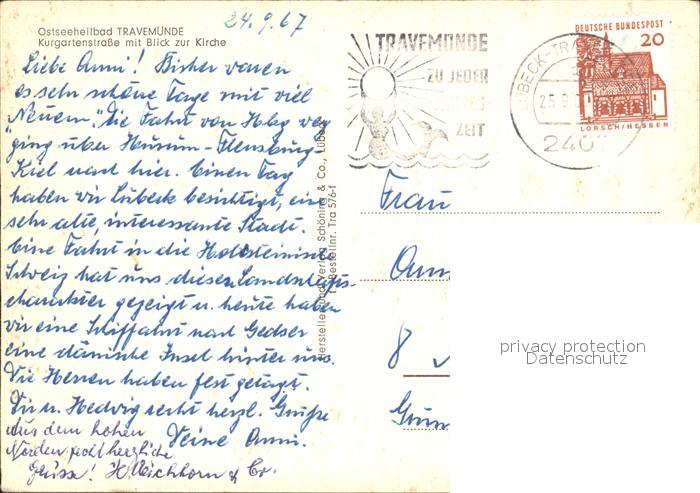 24.9.67
Ostseeheilbad TRAVEMÜNDE
Kurgartenstraße mit Blick zur Kirche
Liebe Anni! Bisher waren
es sehr schöne Tage mit viel
„Neuem". Die Fahrt von Hbg weg
ging über Husum-Flensburg-
Kiel nach hier. Einen Tag
haben wir Lübeck besichtigt, eine
sehr alte, interessante Stadt.
Eine Fahrt in die Holsteinische
Schweiz hat uns diesen Landschafts-
charakter gezeigt u. heute haben
wir eine Schiffahrt nach Gedser
eine dänische Insel hinter uns.
Die Herren haben fest getagt.
Dir u. Hedwig recht herzl. Grüße
Deine Anni.
Aus dem hohen
Norden recht herzliche
Grüsse! H. Eichhorn & Co.
Hersteller und Verlag Schöning & Co., Lübeck
Bestellnr. Tra 576-f
TRAVEMÜNDE
ZU JEDER
ZEIT
LÜBECK-TRA
25.9.
240
DEUTSCHE BUNDESPOST
20
LORSCH/HESSEN
Frau
Ann
8
privacy protection
Datenschutz